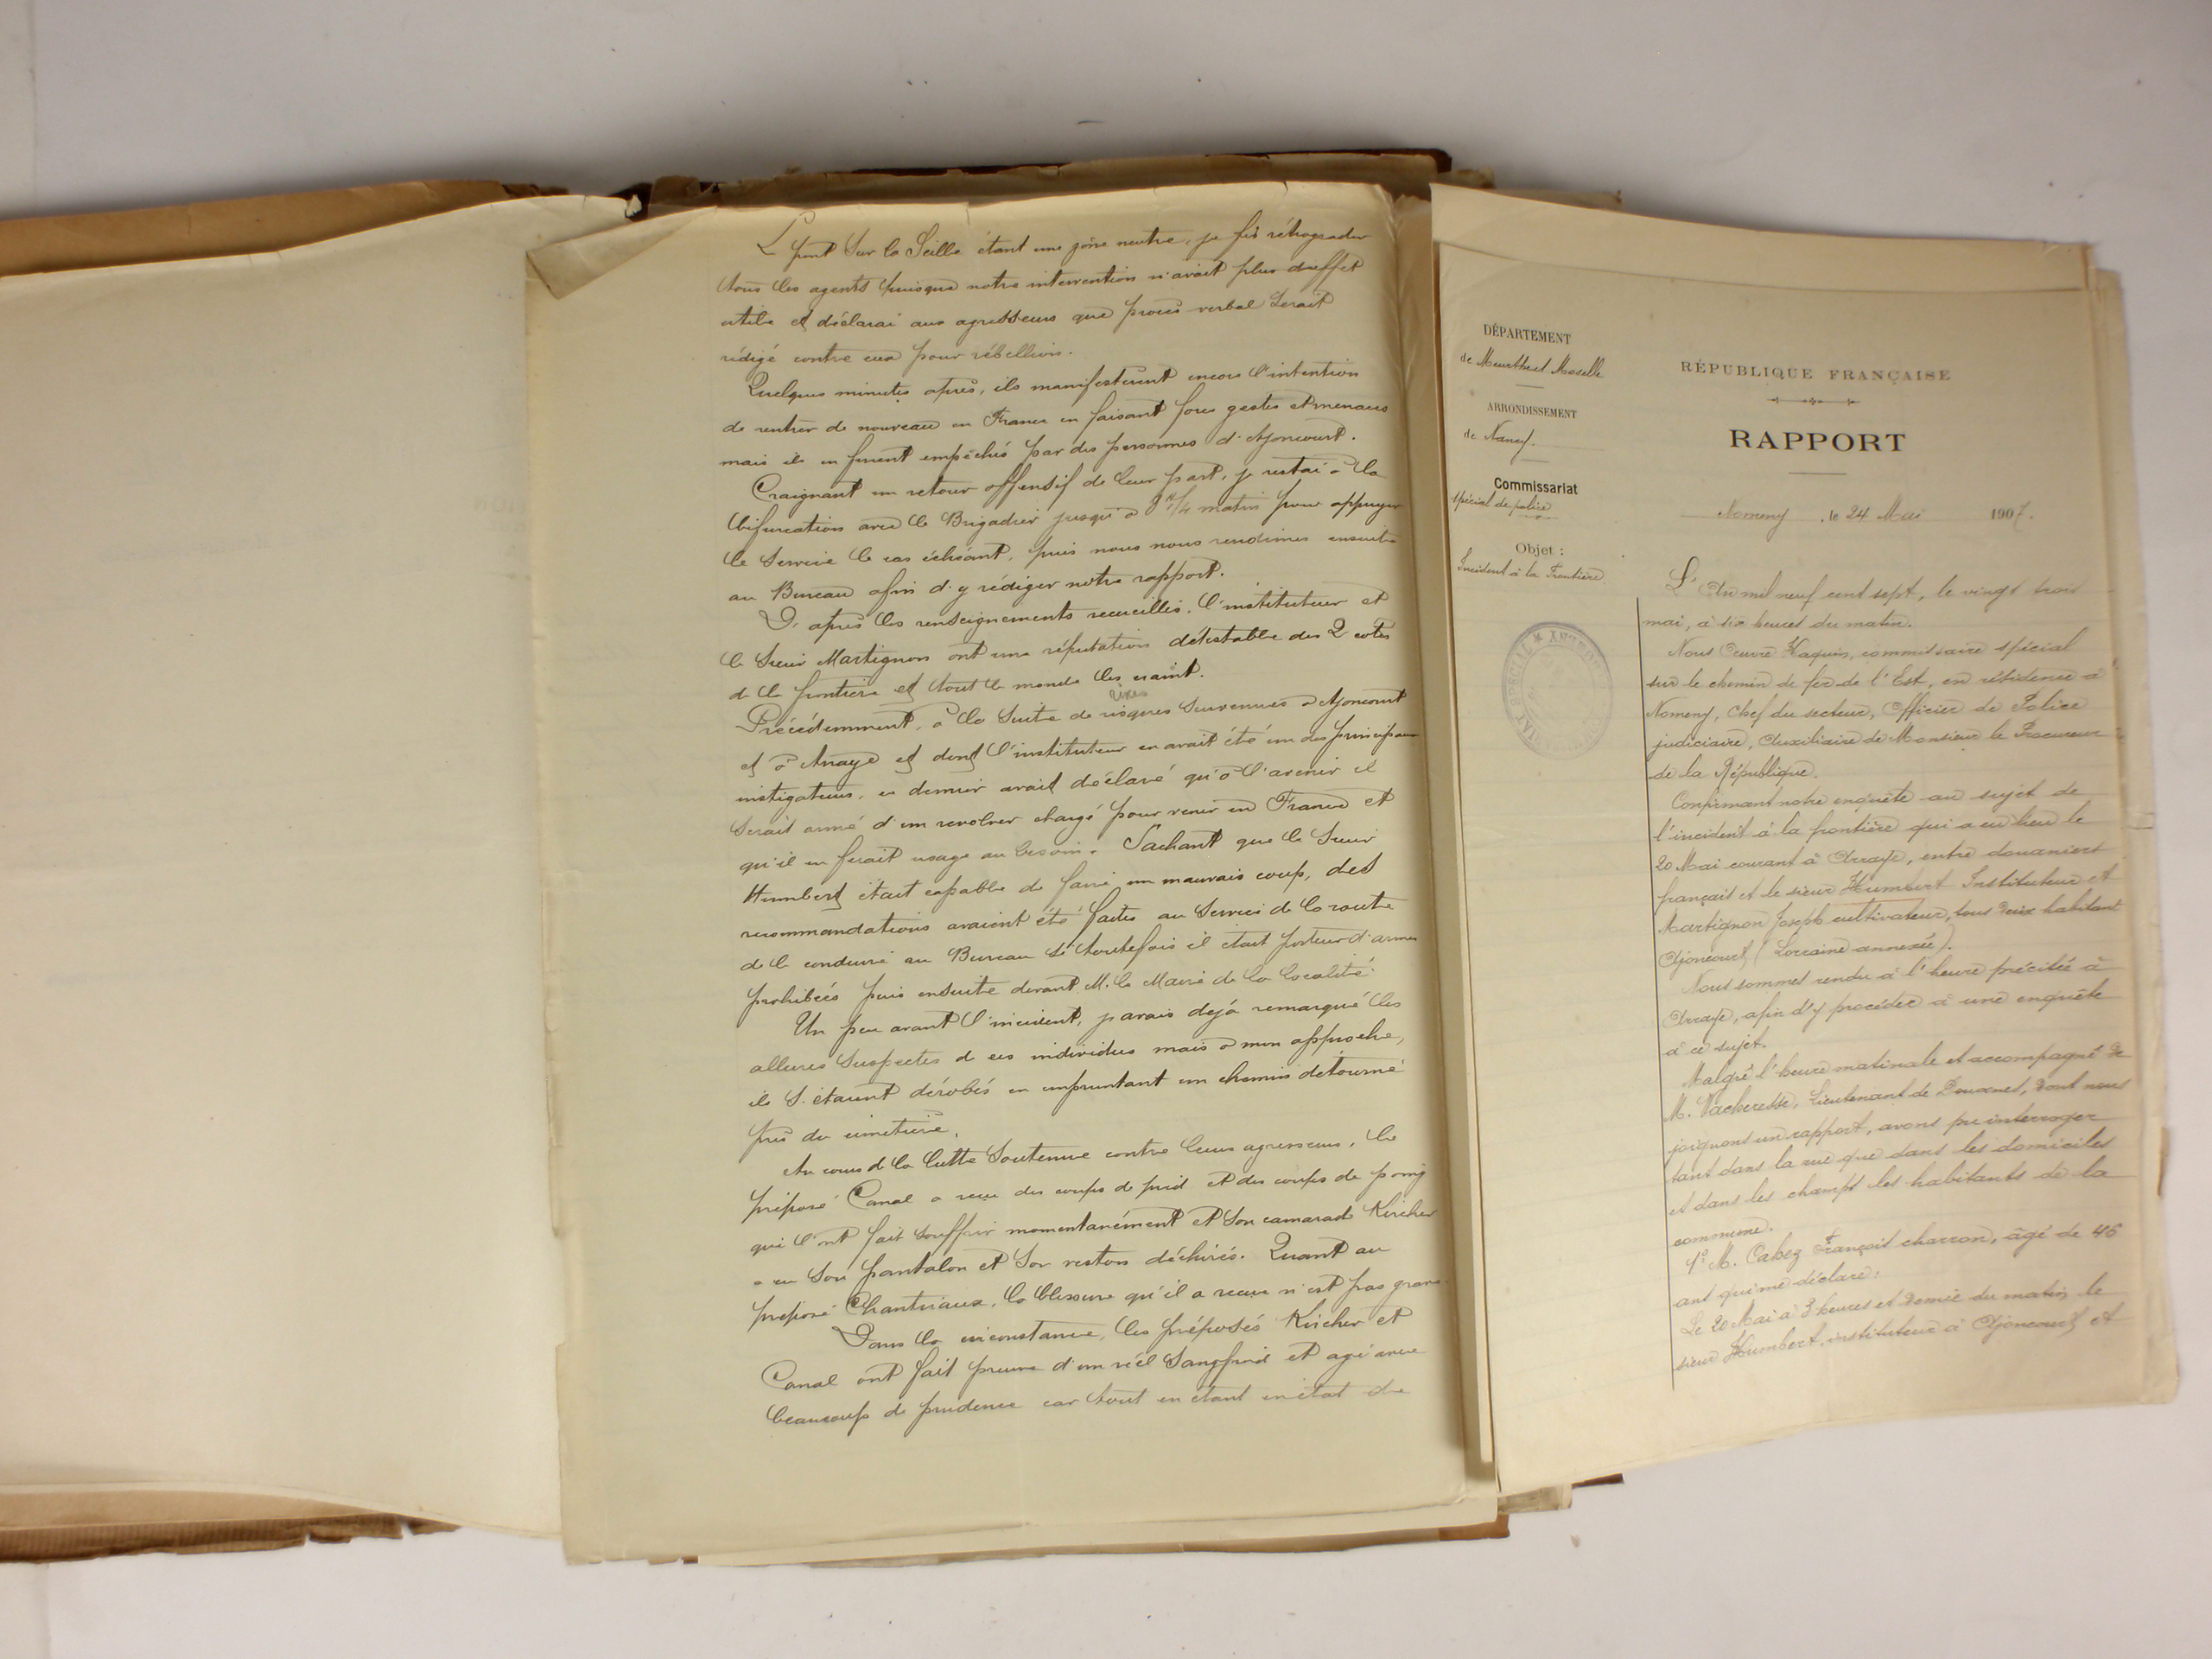 Le pont sur la Seille étant une zône neutre, je fis rétrograder
tous les agents puisque notre intervention n'avait plus d'effet
utile et déclarai aux agresseurs que procès-verbal serait
rédigé contre eux pour rébellion.
Quelques minutes après, ils manifestèrent encore l'intention
de rentrer de nouveau en France en faisant force gestes et menaces
mais ils en furent empêchés par des personnes d'Ajoncourt.
Craignant un retour offensif de leur part, je restai à la
bifurcation avec le Brigadier jusqu'à matin pour appuyer
le service le cas échéant, puis nous nous rendîmes ensuite
au Bureau afin d'y rédiger notre rapport.
D'après les renseignements recueillis, l'instituteur et
le sieur Martignon ont une réputation détestable des 2 côtés
de la frontière et tout le monde les craint.
rixes
Précédemment, à la suite de risques survenues à Ajoncourt
et à Arraye et dont l'instituteur en avait été un des principaux
instigateurs, ce dernier avait déclaré qu'à l'avenir il
serait armé d'un revolver chargé pour venir en France et
qu'il en ferait usage au besoin. Sachant que le sieur
Humbert était capable de faire un mauvais coup, des
recommandations avaient été faites au service de la route
de le conduire au Bureau si toutefois il était porteur d'armes
prohibées puis ensuite devant M. le Maire de la localité.
Un peu avant l'incident, j'avais déjà remarqué les
allures suspectes de ces individus mais à mon approche,
ils s'étaient dérobés en empruntant un chemin détourné
près du cimetière.
Au cours de la lutte soutenue contre leurs agresseurs, le
préposé Canal a reçu des coups de pied et des coups de poing
qui l'ont fait souffrir momentanément et son camarade Kircher
a eu son pantalon et son veston déchirés. Quant au
préposé Chantriaux, la blessure qu'il a reçue n'est pas grave.
Dans la circonstance, les préposés Kircher et
Canal ont fait preuve d'un réel sangfroid et agi avec
beaucoup de prudence car tout en étant en état de
DÉPARTEMENT
de Meurthe et Moselle
ARRONDISSEMENT
de Nancy.
Commissariat
spécial de police
Objet :
Incident à la Frontière.
RÉPUBLIQUE FRANÇAISE
RAPPORT
Nomeny, le 24 Mai 1907.
L'An mil neuf cent sept, le vingt trois
mai, à six heures du matin.
Nous Haquin, commissaire spécial
sur le chemin de fer de l'Est, en résidence à
Nomeny, Chef du secteur, Officier de Police
judiciaire, Auxiliaire de Monsieur le Procureur
de la République.
Confirmant notre enquête au sujet de
l'incident à la frontière qui a eu lieu le
20 Mai courant à Arraye, entre douaniers
français et le sieur Humbert Instituteur et
Martignon Joseph cultivateur, tous deux habitant
Ajoncourt (Lorraine annexée).
Nous sommes rendu à l'heure précitée à
Arraye, afin d'y procéder à une enquête
à ce sujet.
Malgré l'heure matinale et accompagné de
M. Vacheresse, Lieutenant de Douanes, dont nous
joignons un rapport, avons pu interroger
tant dans la rue que dans les domiciles
et dans les champs les habitants de la
commune.
1° M. Cabez François charron, âgé de 46
ans qui me déclare :
Le 20 Mai à 3 heures et demie du matin, le
sieur Humbert, instituteur à Ajoncourt et